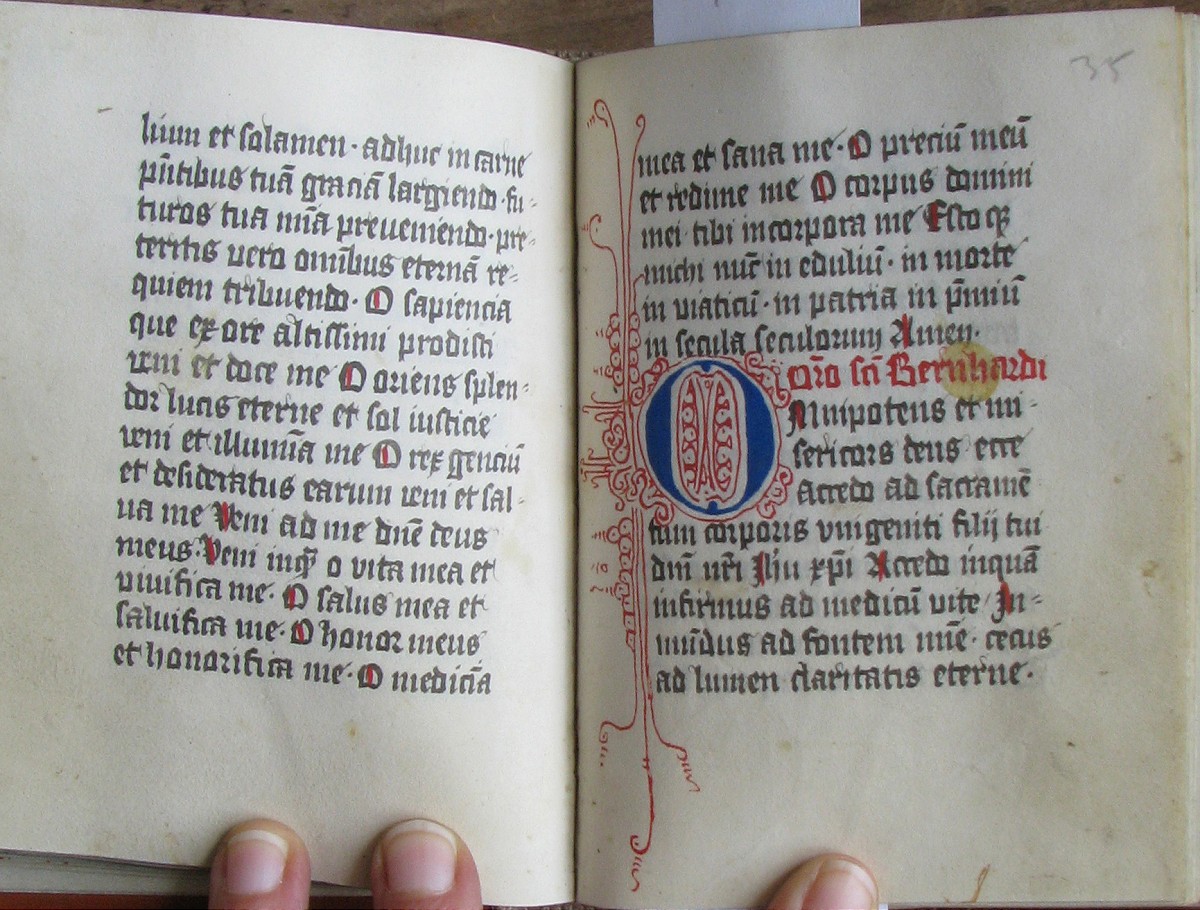 lium et solamen · adhuc in carne
pn̄tibus tuā graciā largiendo · fu-
turos tua mīa preueniendo · pre-
teritis vero omībus eternā re-
quiem tribuendo · O sapiencia
que ex ore altissimi prodisti
veni et doce me O oriens splen-
dor lucis eterne et sol iusticie
veni et illumīa me O rex genciū
et desideratus earum veni et sal-
ua me Veni ad me dnē deus
meus · Veni inqͣ o vita mea et
viuifica me · O salus mea et
saluifica me · O honor meus
et honorifica me · O medicīa
35
mea et sana me · O preciū meū
et redime me O corpus domini
mei tibi incorpora me Esto qͥ
michi nūc in eduliū · in morte
in viaticū · in patria in p̄miū
in secula seculorum Amen ·
Orō sc̄i Bernhardi
OMnipotens et mi-
sericors deus ecce
accedo ad sacramē
tum corporis vnigeniti filij tui
dnī nr̄i Jh̄u xp̄i Accedo inquā
infirmus ad medicū vite In-
mūdus ad fontem mīe · cecus
ad lumen claritatis eterne ·